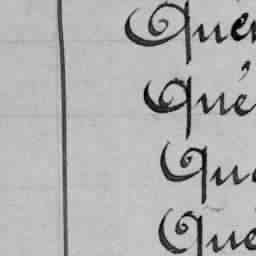 Quer
Qué
Qu
Que